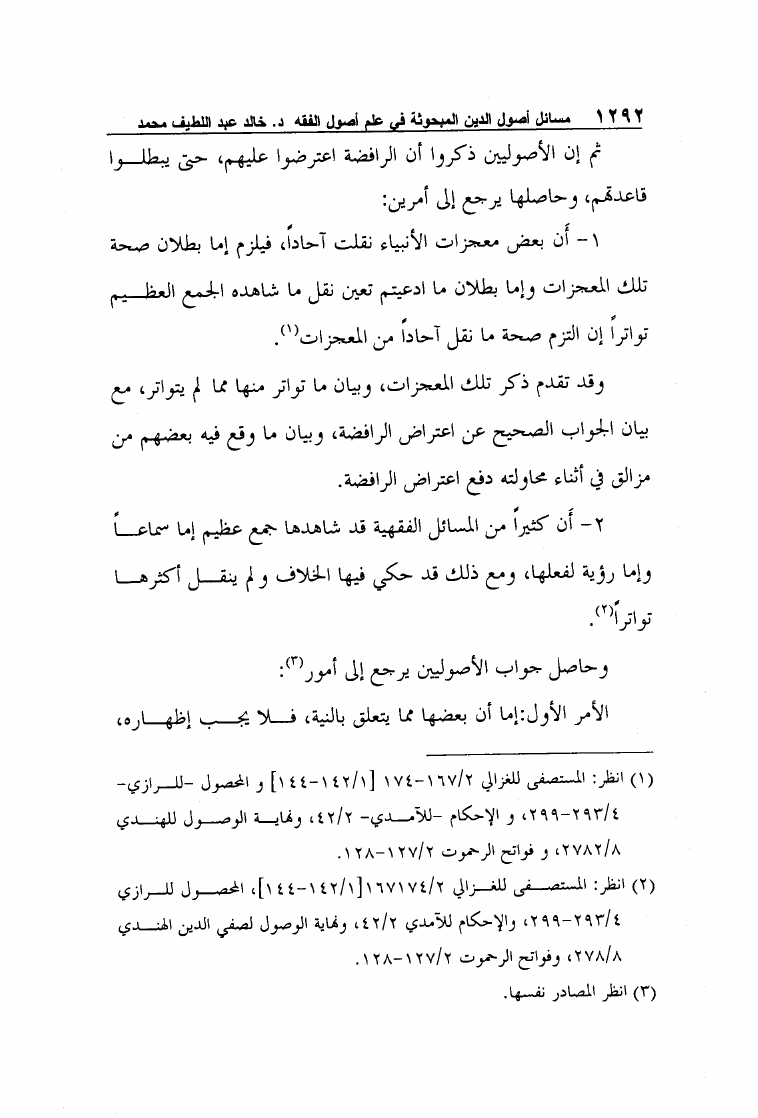 ١٢٩٢ مسائل أصول الدين المبحوثة في علم أصول الفقه د. خالد عبد اللطيف محمد
ثم إن الأصوليين ذكروا أن الرافضة اعترضوا عليهم، حتى يبطلـــوا
قاعدتهم، وحاصلها يرجع إلى أمرين:
١- أن بعض معجزات الأنبياء نقلت آحاداً، فيلزم إما بطلان صحة
تلك المعجزات وإما بطلان ما ادعيتم تعين نقل ما شاهده الجمع العظيـــم
تواتراً إن التزم صحة ما نقل آحاداً من المعجزات(١).
وقد تقدم ذكر تلك المعجزات، وبيان ما تواتر منها مما لم يتواتر، مع
بيان الجواب الصحيح عن اعتراض الرافضة، وبيان ما وقع فيه بعضهم من
مزالق في أثناء محاولته دفع اعتراض الرافضة.
٢- أن كثيراً من المسائل الفقهية قد شاهدها جمع عظيم إما سماعـــاً
وإما رؤية لفعلها، ومع ذلك قد حكي فيها الخلاف و لم ينقـــل أكثرهـــا
تواتراً(٢).
وحاصل جواب الأصوليين يرجع إلى أمور(٣):
الأمر الأول:إما أن بعضها مما يتعلق بالنية، فـــلا يجـــب إظهـــاره،
(١) انظر: المستصفى للغزالي ١٦٧/٢-١٧٤ [١٤٢/١-١٤٤] و المحصول -للـــرازي-
٢٩٣/٤-٢٩٩، و الإحكام -للآمـــدي- ٤٢/٢، ونهايـــة الوصـــول للهنـــدي
٢٧٨٢/٨، و فواتح الرحموت ١٢٧/٢-١٢٨.
(٢) انظر: المستصـــفى للغـــزالي ١٦٧١٧٤/٢[١٤٢/١-١٤٤]، المحصـــول للـــرازي
٢٩٣/٤-٢٩٩، والإحكام للآمدي ٤٢/٢، ونهاية الوصول لصفي الدين الهنـــدي
٢٧٨/٨، وفواتح الرحموت ١٢٧/٢-١٢٨.
(٣) انظر المصادر نفسها.